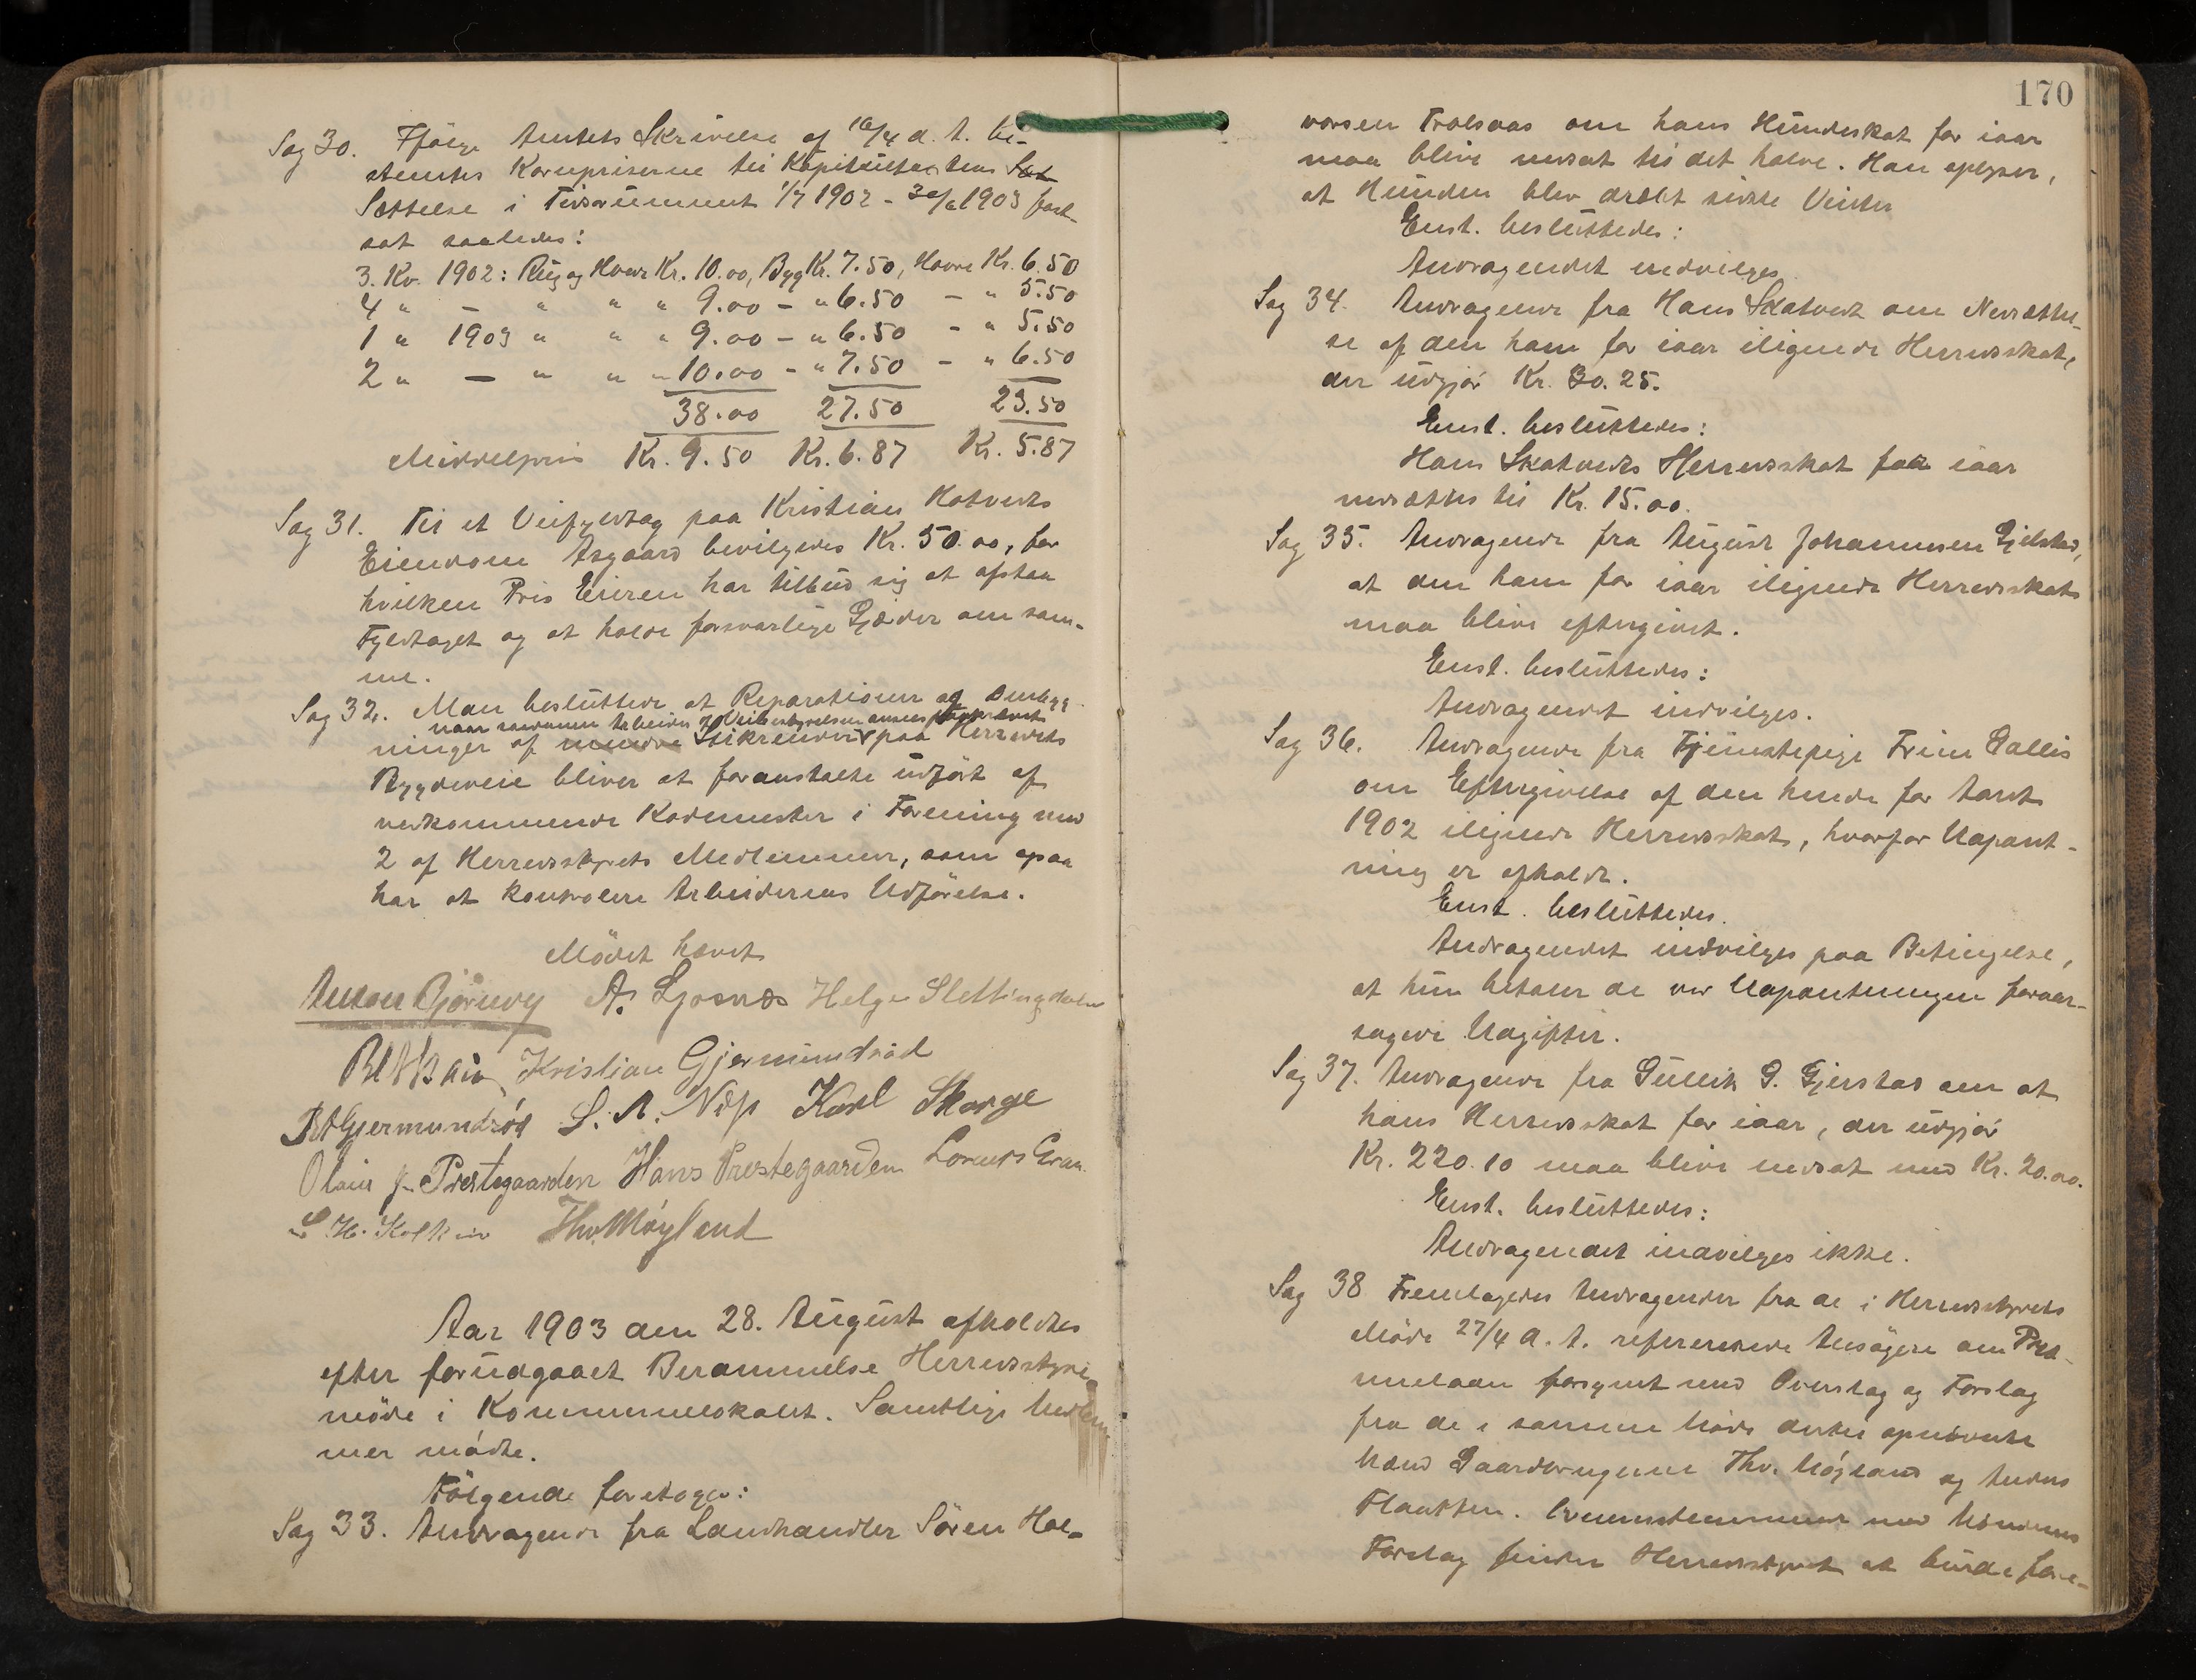 Sag 30. Ifølge Amtets Skrivelse af 16/4 d. A. be-
stemtes Kornpriserne til Kapitulstakstens Sat
Sættelse i Tidsrummet 1/7 1902 - 30/6 1903 fast
sat saaledes:
3. Kv. 1902: Rug og Hvede Kr. 10.00, Byg Kr. 7.50, Havre Kr. 6.50
4 " — " " " 9.00 - " 6.50 - " 5.50
1 " 1903 " " " 9.00 - " 6.50 - " 5.50
2 " — " " " 10.00 - " 7.50 - " 6.50
38.00 27.50 23.50
Middelpris Kr. 9.50 Kr. 6.87 Kr. 5.87
Sag 31. Til et Veifyldtag paa Kristian Hotvedts
Eiendom Asgaard bevilgedes Kr. 50.00, for
hvilken Pris Eieren har tilbud sig at afstaa
Fyldtaget og at holde forsvarlige Gjærder om sam-
me.
Sag 32. Man besluttede at Reparationer og Ombyg-
naar saadanne Arbeider af Veibestyrelsen ansees paakrævet
ninger af mindre Stikrender paa Herredets
Bygdeveie bliver at foranstalte udført af
vedkommende Rodemester i Forening med
2 af Herredsstyrets Medlemmer, som ogsaa
har at kontrolere Arbeidernes Udførelse.
Mödet hævet
Anton Gjörwy A. Ljosnæs Helge Slettingdalen
Kristian Gjermundröd
B A Gjermundröd S. A. Næss Karl Skorge
Olaus J. Prestegaarden Hans Prestegaarden Lorents Gran.
L. H. Kolkin Thv. Möyland
Aar 1903 den 28. August afholdtes
efter forudgaaet Berammelse Herredsstyre
möde i Kommunelokalet. Samtlige Medlem
mer mödte.
Fölgende foretoges:
Sag 33. Andragende fra Landhandler Sören Hal-
170
vorsen Trolsaas om hans Hundeskat for iaar
maa blive nedsat til det halve. Han oplyser,
at Hunden blev dræbt sidste Vinter
Enst. besluttedes:
Andragendet indvilges.
Sag 34. Andragende fra Hans Skatvedt om Nedsættel-
se af den ham for iaar ilignede Herredsskat,
der udgjör Kr. 30.25.
Enst. besluttedes:
Hans Skatvedts Herredsskat for iaar
nedsættes til Kr. 15.00.
Sag 35. Andragende fra August Johannesen Gjelstad,
at den ham for iaar ilignede Herredsskat
maa blive eftergivet.
Enst. besluttedes:
Andragendet indvilges.
Sag 36. Andragende fra Tjenestepige Trine Gallis
om Eftergivelse af den hende for Aaret
1902 ilignede Herredsskat, hvorfor Udpant-
ning er afholdt.
Enst. besluttedes.
Andragendet indvilges paa Betingelse,
at hun betaler de ved Udpantningen foraar-
sagede Udgifter.
Sag 37. Andragende fra Gullik G. Gjerstad om at
hans Herredsskat for iaar, der udgjör
Kr. 220.10 maa blive nedsat med Kr. 20.00.
Enst. besluttedes:
Andragendet indvilges ikke.
Sag 38 Fremlagdes Andragender fra de i Herredsstyrets
Möde 27/4 d. A. refererede Ansögere om
forsynet med Overslag og Forslag
fra de i samme Möde dertil opnævnte
Mænd Gaardbrugerne Thv. Möyland og Anders
Flaatten. Overensstemmende med Mændenes
Forslag finder Herredsstyret at burde fore-